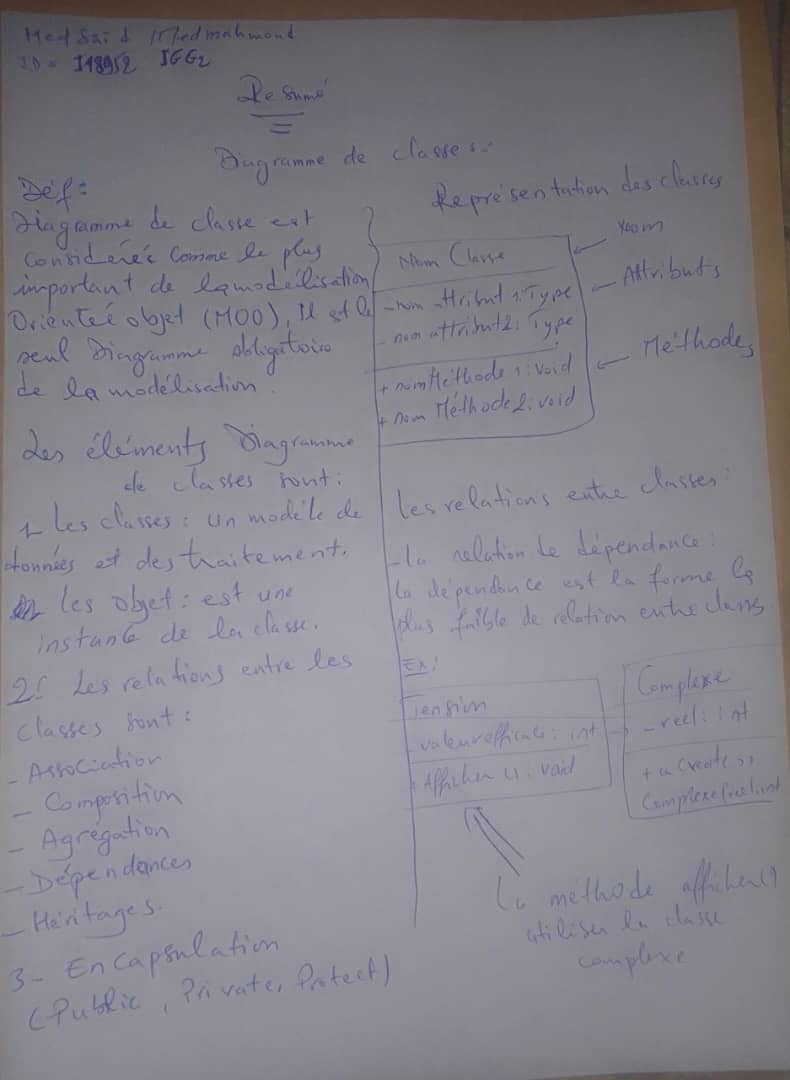 Med Said Med mahmoud
ID = I18952 IGG2
Resumé
Diagramme de classes :
Déf :
Diagramme de classe est
considéreé comme le plus
important de la modélisation
Orienteé objet (MOO), Il est le
seul Diagramme obligatoire
de la modélisation.
Les éléments Diagramme
de classes sont :
1- Les classes : un modéle de
données et des traitement.
les objet : est une
instance de la classe.
2: Les relations entre les
classes sont :
- Association
- Composition
- Agrégation
- Dépendances
- Héritages.
3- Encapsulation
(Public, Private, Protect)
Représentation des classes
Nom Classe
- nom attribut 1: Type
- nom attribut2: Type
+ nomMéthode 1: void
+ nom Méthode 2: void
Attributs
Méthodes
Les relations entre classes :
- la relation de dépendance :
la dépendance est la forme la
plus faible de relation entre class
Ex:
Tension
- valeurefficace : int
+ Afficher () : void
Complexe
- reel : int
+ « Create »
Complexe (reel.int
La méthode afficher()
utiliser la classe
complexe